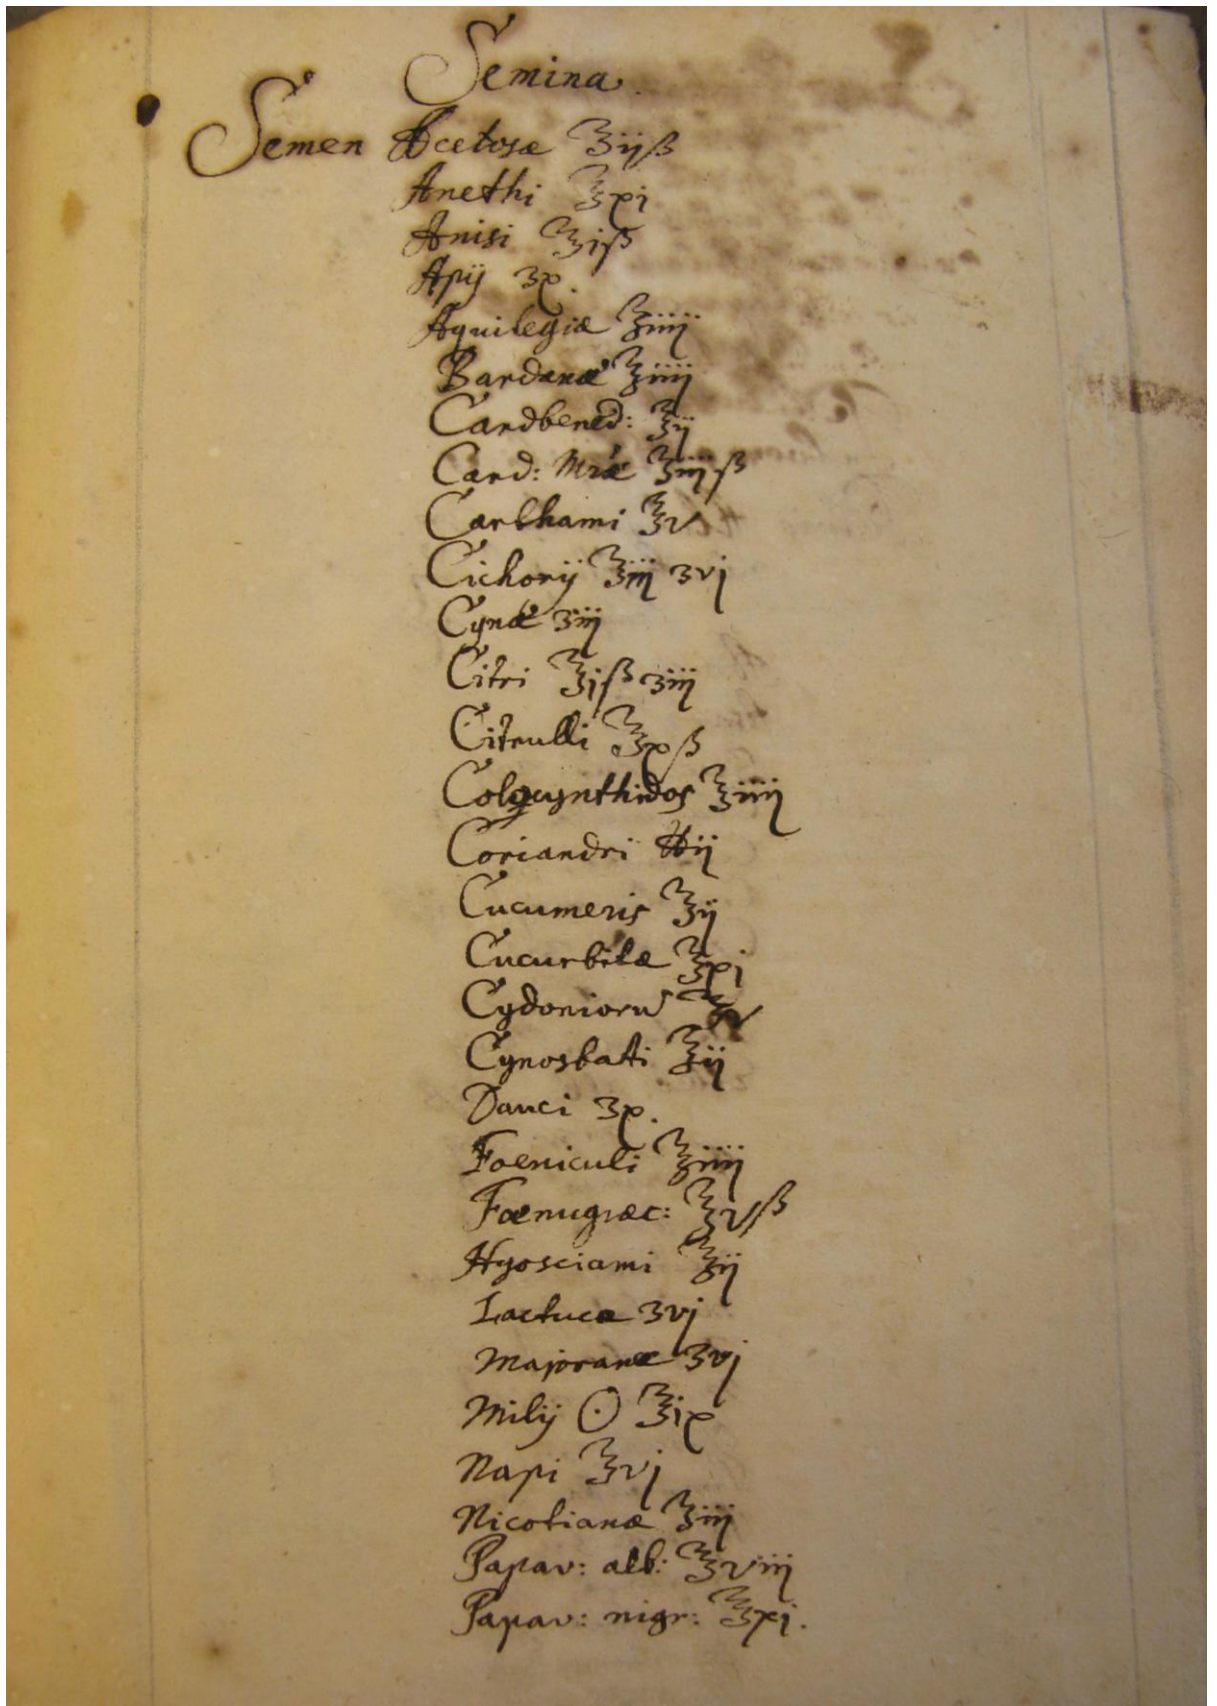 Semina.
Semen Acetosæ ℥ijß
Anethi ℥xj
Anisi ℥jß
Apij ʒx.
Aquilegiæ ℥iiij
Bardanæ ℥iiij
Cardbened: ℥ij
Card: Mriæ ℥iiijß
Carthami ℥v
Cichorij ℥iij ʒvj
Cynæ ʒiij
Citri ℥jß ʒiij
Citrulli ℥xß
Colocynthidos ℥iiij
Coriandri ℔ij
Cucumeris ℥ij
Cucurbitæ ℥xj
Cydoniorū ℥v
Cynosbati ℥ij
Dauci ʒx.
Foeniculi ℥iiij
Fœnugræc: ℥vß
Hyosciami ℥ij
Lactucæ ʒvj
Majoranæ ʒvj
Milij ☉ ℥ix
Napi ℥vj
Nicotianæ ℥iij
Papav: alb: ℥viij
Papav: nigr: ℥xj.